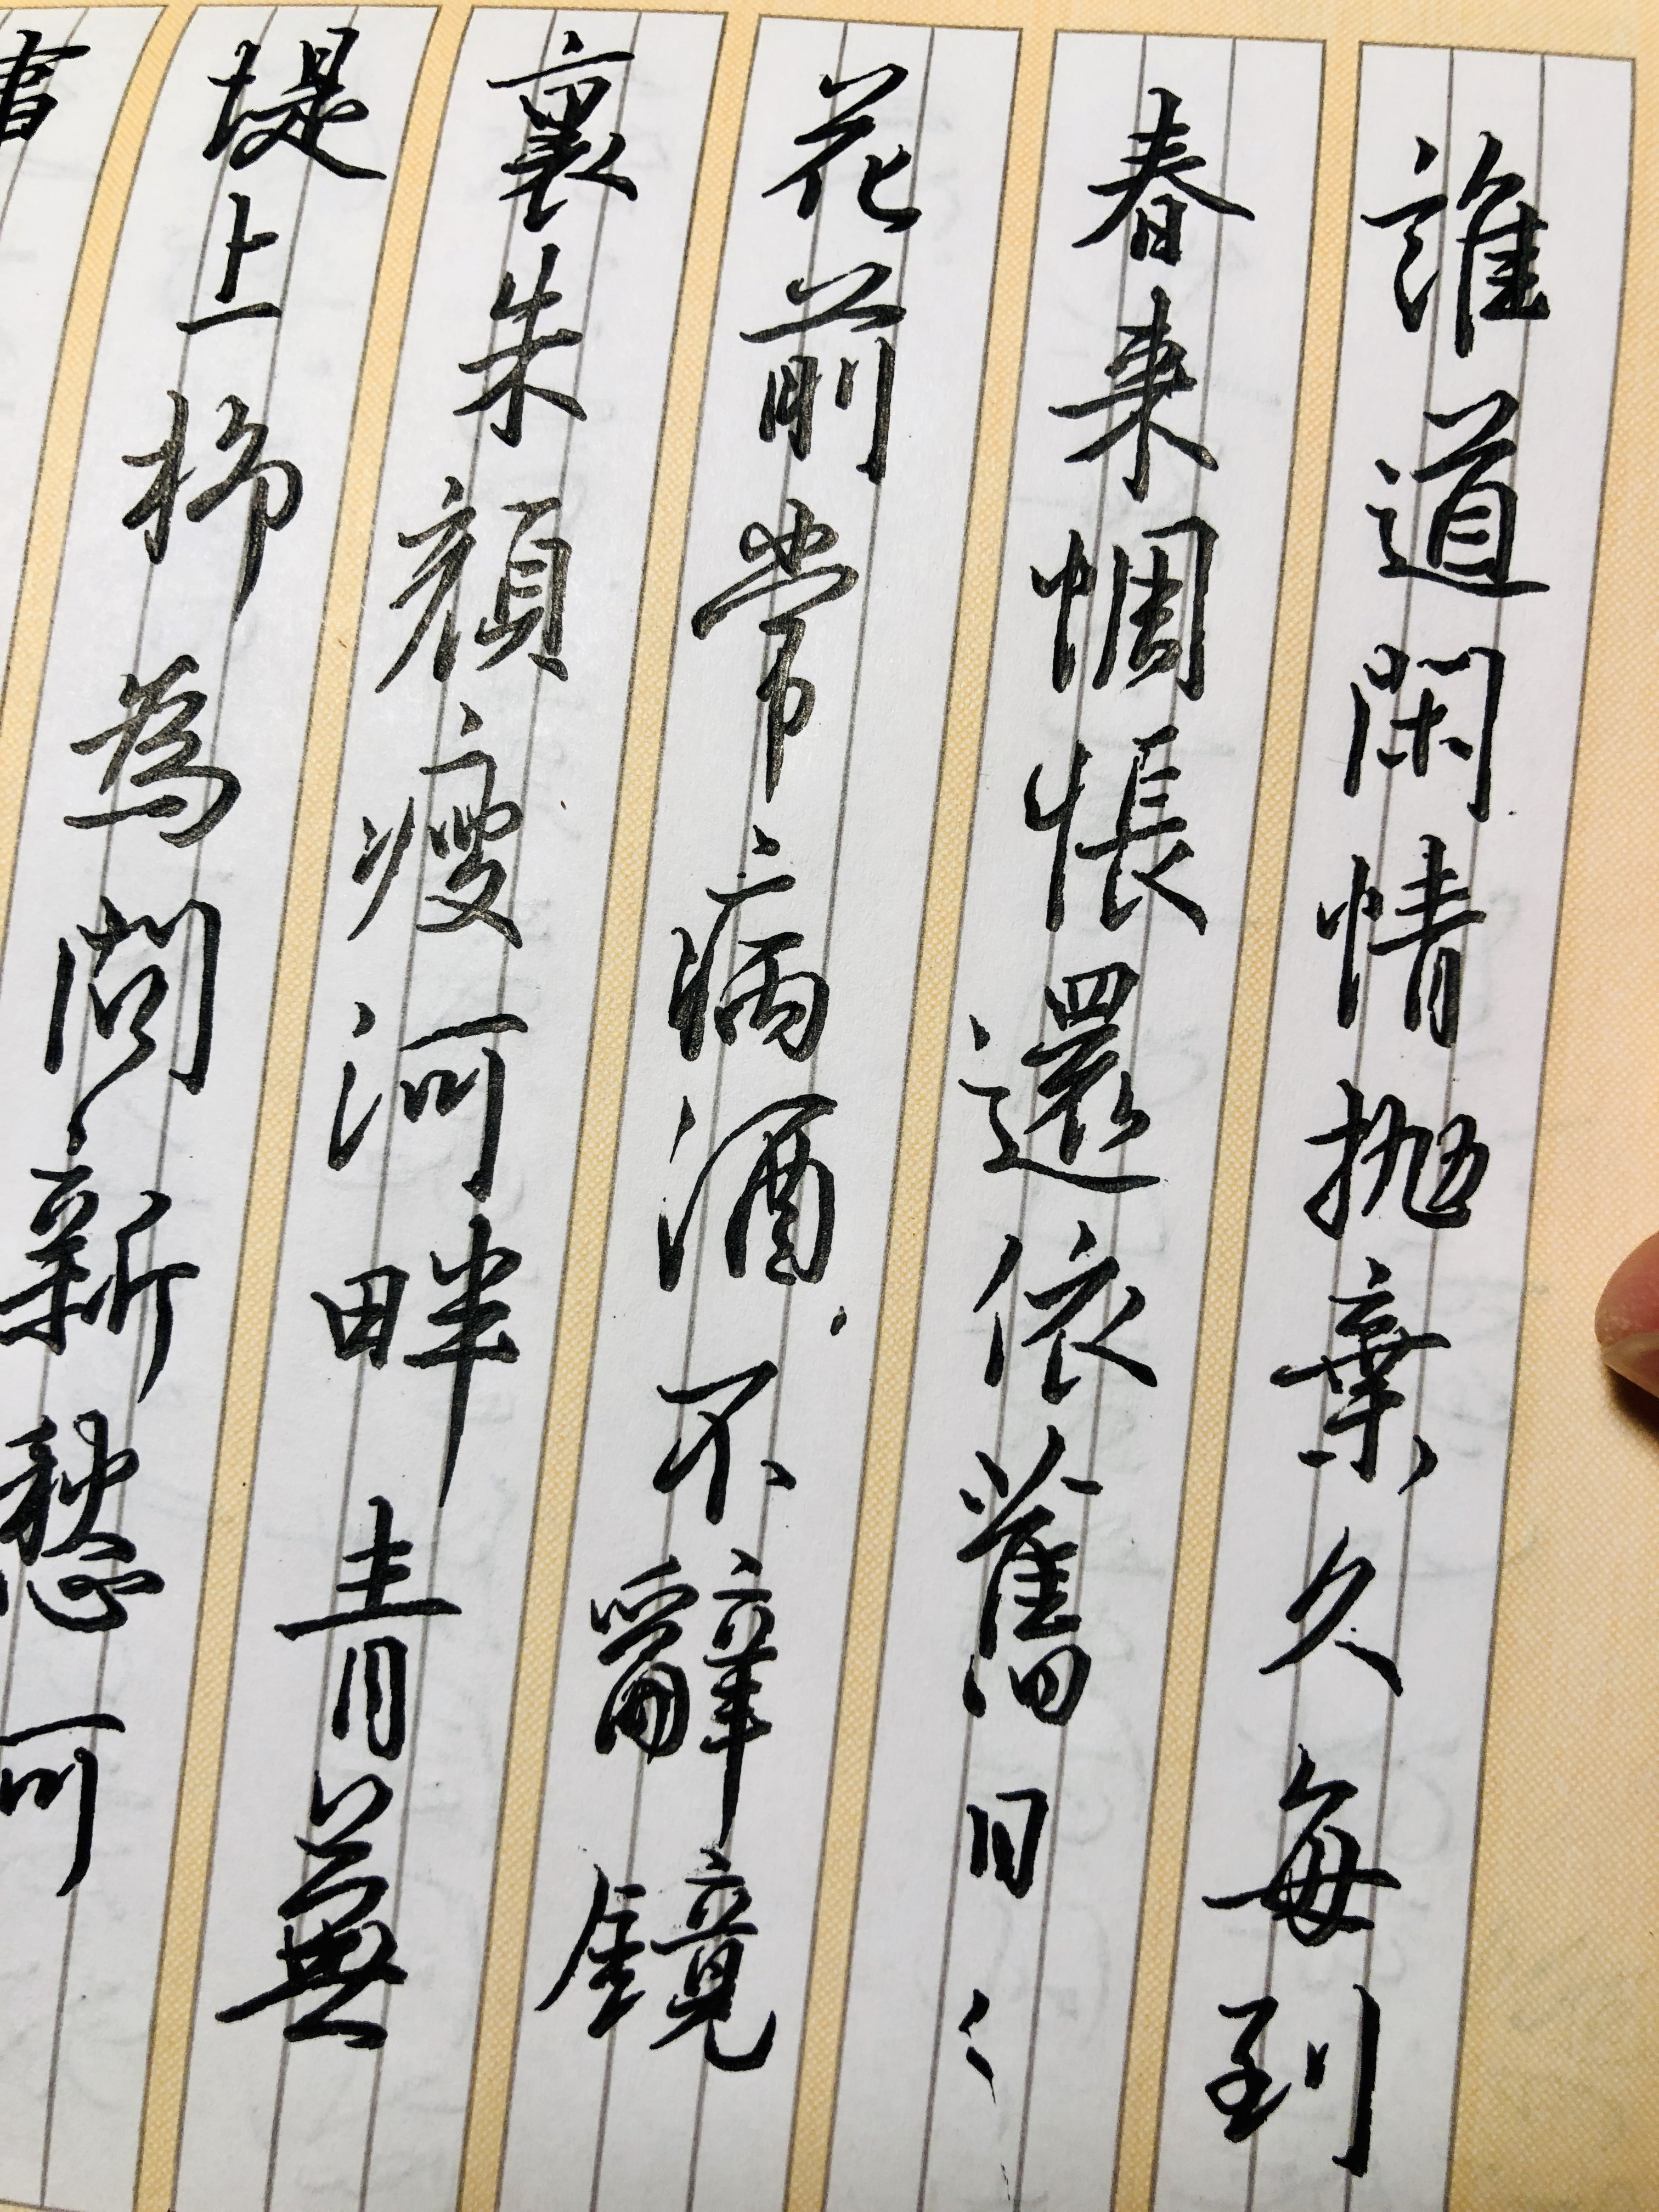 誰道閑情拋棄久每到
春来惆悵還依舊日〻
花前常病酒不辭鏡
裏朱顏瘦河畔青蕪
堤上柳為問新愁何
書